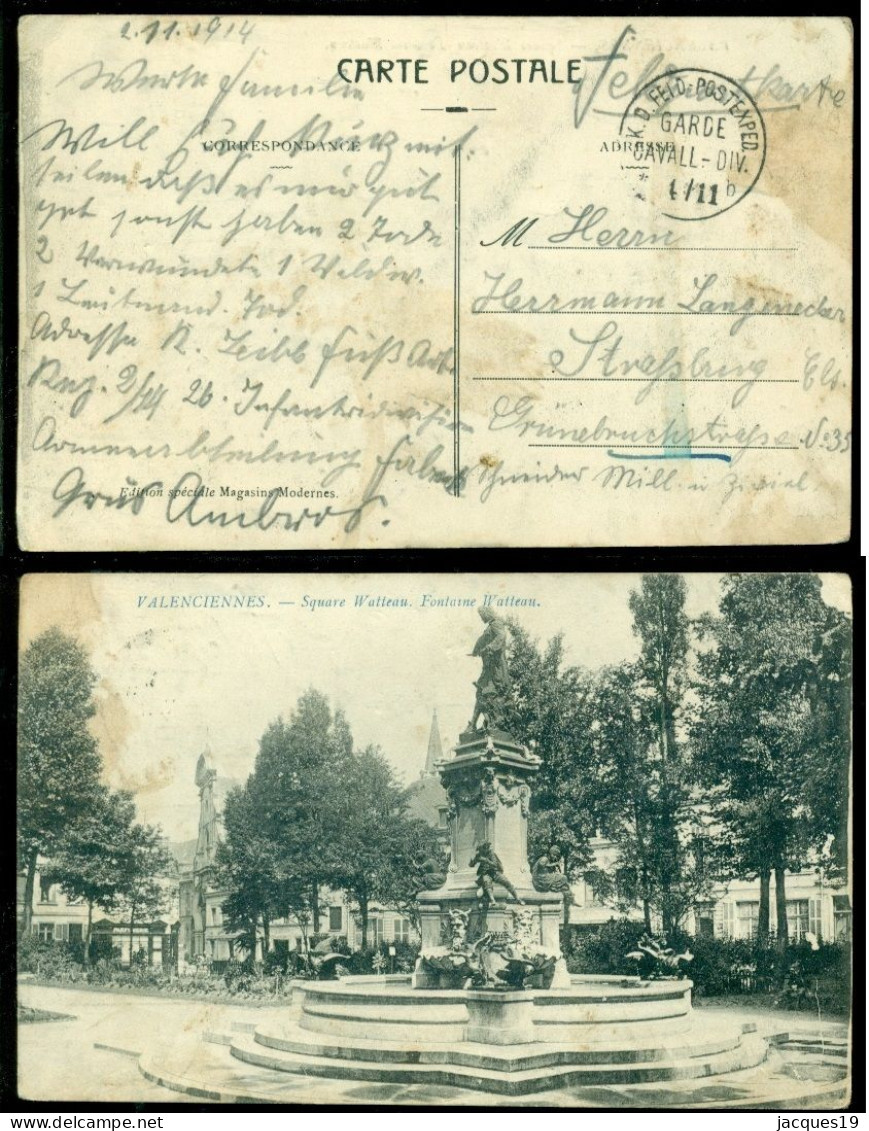 2.11.1914
CARTE POSTALE
Feldpostkarte
K. D. FELD-POSTEXPED.
GARDE
CAVALL.-DIV.
* 4/11 b
CORRESPONDANCE
ADRESSE
Werte Familie
Will Euch kurz mit-
teilen daß es mir gut
get sonst haben 2 Tode
2 Verwundete 1
1 Leutnand. Tod.
Adresse K. Fuß Art.
Reg. 2/14 26. Infantridivision
Armeeabteilung
Grus Ambros.
M Herrn
Herrmann
Straßburg Els.
Grünebruchstrasse No 35
Schneider Mill. u Ziviel.
Edition spéciale Magasins Modernes.
VALENCIENNES. — Square Watteau. Fontaine Watteau.
© jacques19